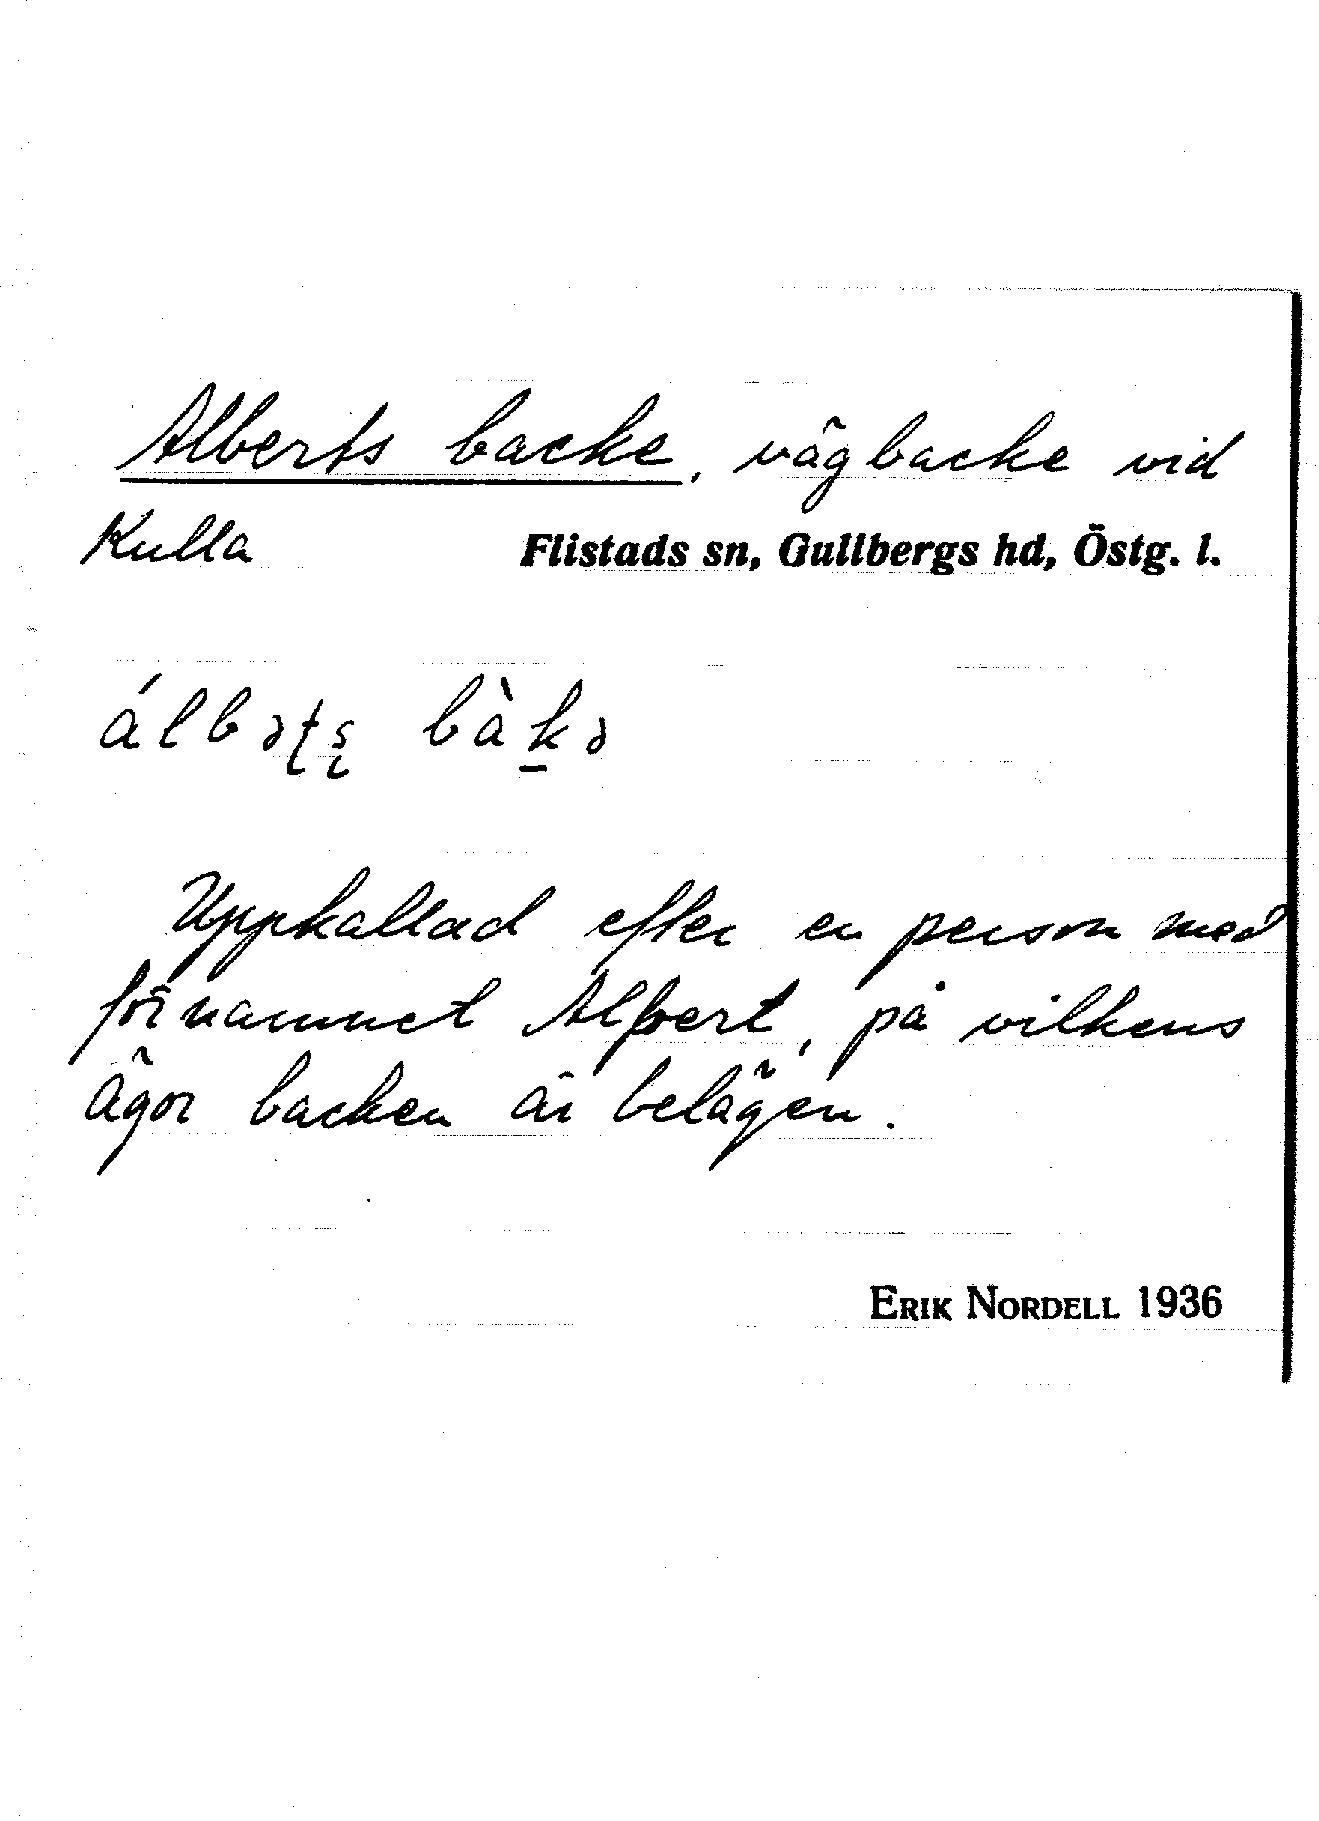 Alberts backe, vägbacke vid
Kulla Flistads sn, Gullbergs hd, Östg. l.
álbəʈʂ bàk̲ə
Uppkallad efter en person med
förnamnet Albert, på vilkens
ägor backen är belägen.
ERIK NORDELL 1936